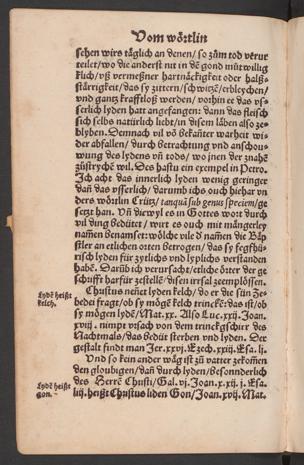 Vom wörtlin
schen wirs täglich an denen / so zům tod verur
teilet / wo die anderst nit in dē gond můtwillig
klich / vß vermeßner hartnäckigkeit oder halß-
stärrigkeit / das sy zittern / schwitzē / erbleychen /
vnd gantz krafftloß werden / vorhin ee das vs-
serlich lyden hat angefangen: dann das fleisch
sich selbs natürlich liebt / in disem läben also ze-
blyben. Demnach vil vō bekañter warheit wi-
der abfallen / durch betrachtung vnd anschou-
wung des lydens vñ tods / wo jnen der znahē
zůstrychē wil. Das hastu ein exempel in Petro.
Ich acht das innerlich lyden wenig geringer
dañ das vsserlich / darumb ichs ouch hiehar vn
ders wörtlin Crütz / tanquā sub genus speciem / ge
setzt han. Vñ diewyl es in Gottes wort durch
vil ding bedütet / wirt es ouch mit māngerley
namēn benamset: wölche vile d' namēn die Bäp
stler an etlichen orten betrogen / das sy fegfhü-
risch lyden für zytlichs vnd lyplichs verstanden
habē. Darūb ich verursachet / etliche örter der ge
schrifft harfür zestellē / disen irrsal zeemplössen.
Christus näñet lyden kelch / do er die sün Ze-
bedei fragt / ob sy mögē kelch trinckē: das ist / ob
sy mögen lydē / Mat. xx. Also Luc. xxij. Joan.
xviij. nimpt vrsach von dem trinckgschirr des
Nachtmals / das bedüt sterben vnd lyden. Der
gestalt findt man Jer. xxvj. Ezech. xxiij. Esa. lj.
Vnd so kein ander wäg ist zů vatter zekomēn
den gloubigen / dañ durch lyden / Besonnderlich
des Herrē Christi / Gal. vj. Joan. x. xij. j. Esa.
liij. heißt Christus liden Gon / Joan. xvij. Mat.
Lydē heißt
kelch.
Lydē heißt
gon.